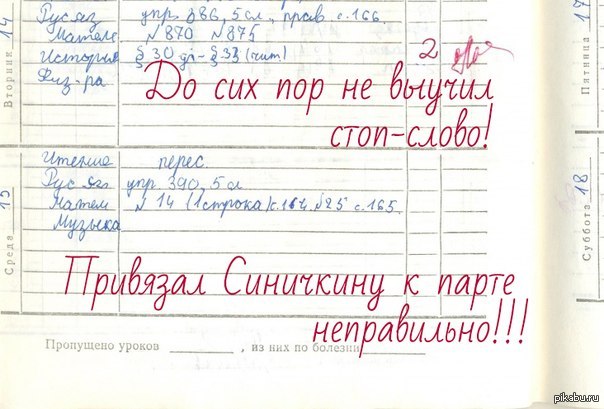 Вторник 14
Рус яз упр 386, 5 сл, прав. с.166.
Матем № 870 № 875
История § 30 §33 (чит) 2
Физ-ра
До сих пор не выучил
стоп-слово!
Чтение перес
Рус яз упр 390, 5 сл
Матем № 14 (1 строка) с.164. №25 с.165.
Музыка
Среда 15
Привязал Синичкину к парте
неправильно!!!
Пропущено уроков , из них по болезни
Пятница 17
Суббота 18
pikabu.ru